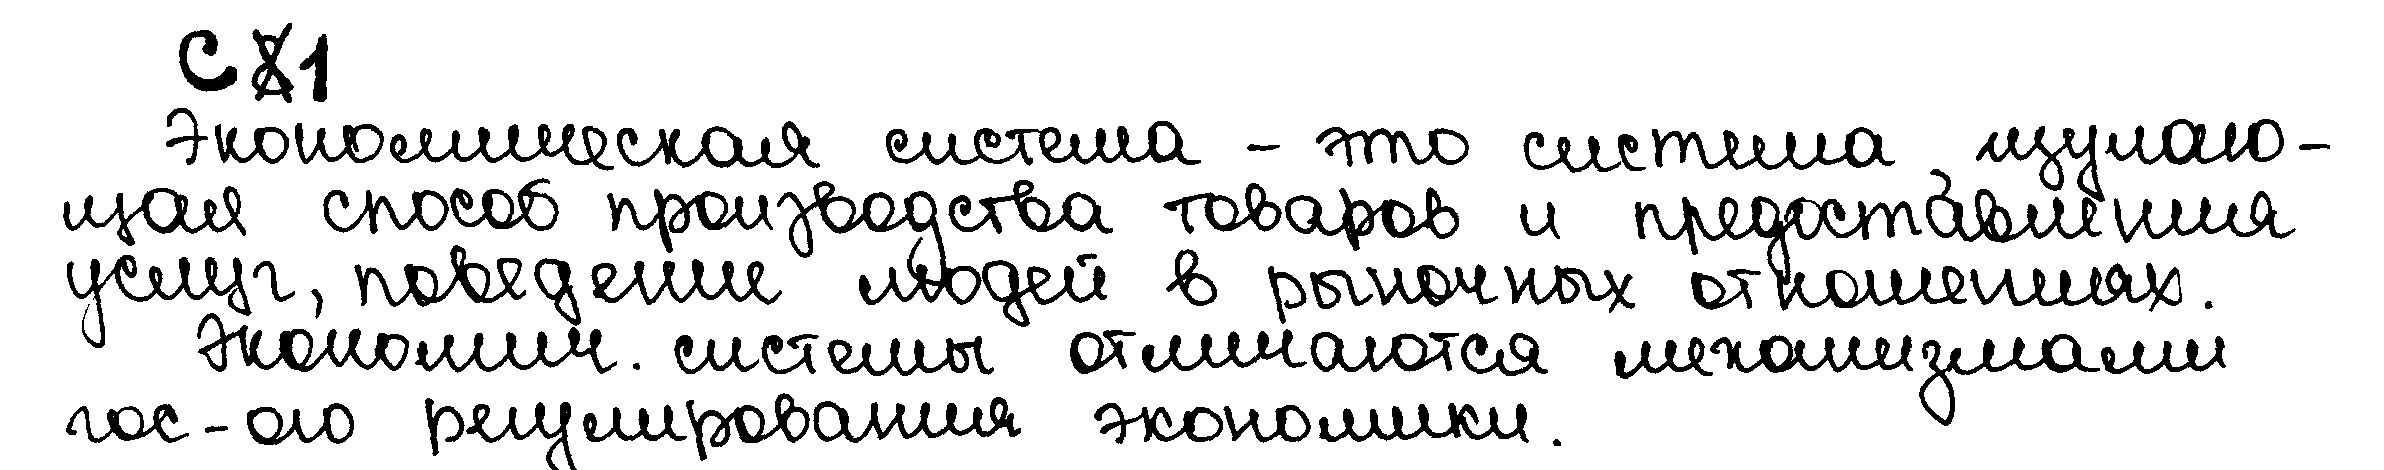 С1
Экономическая система – это система, изучаю-
щая способ производства товаров и предоставления
услуг, поведение людей в рыночных отношениях.
Экономич. системы отличаются механизмами
гос-ого регулирования экономики.